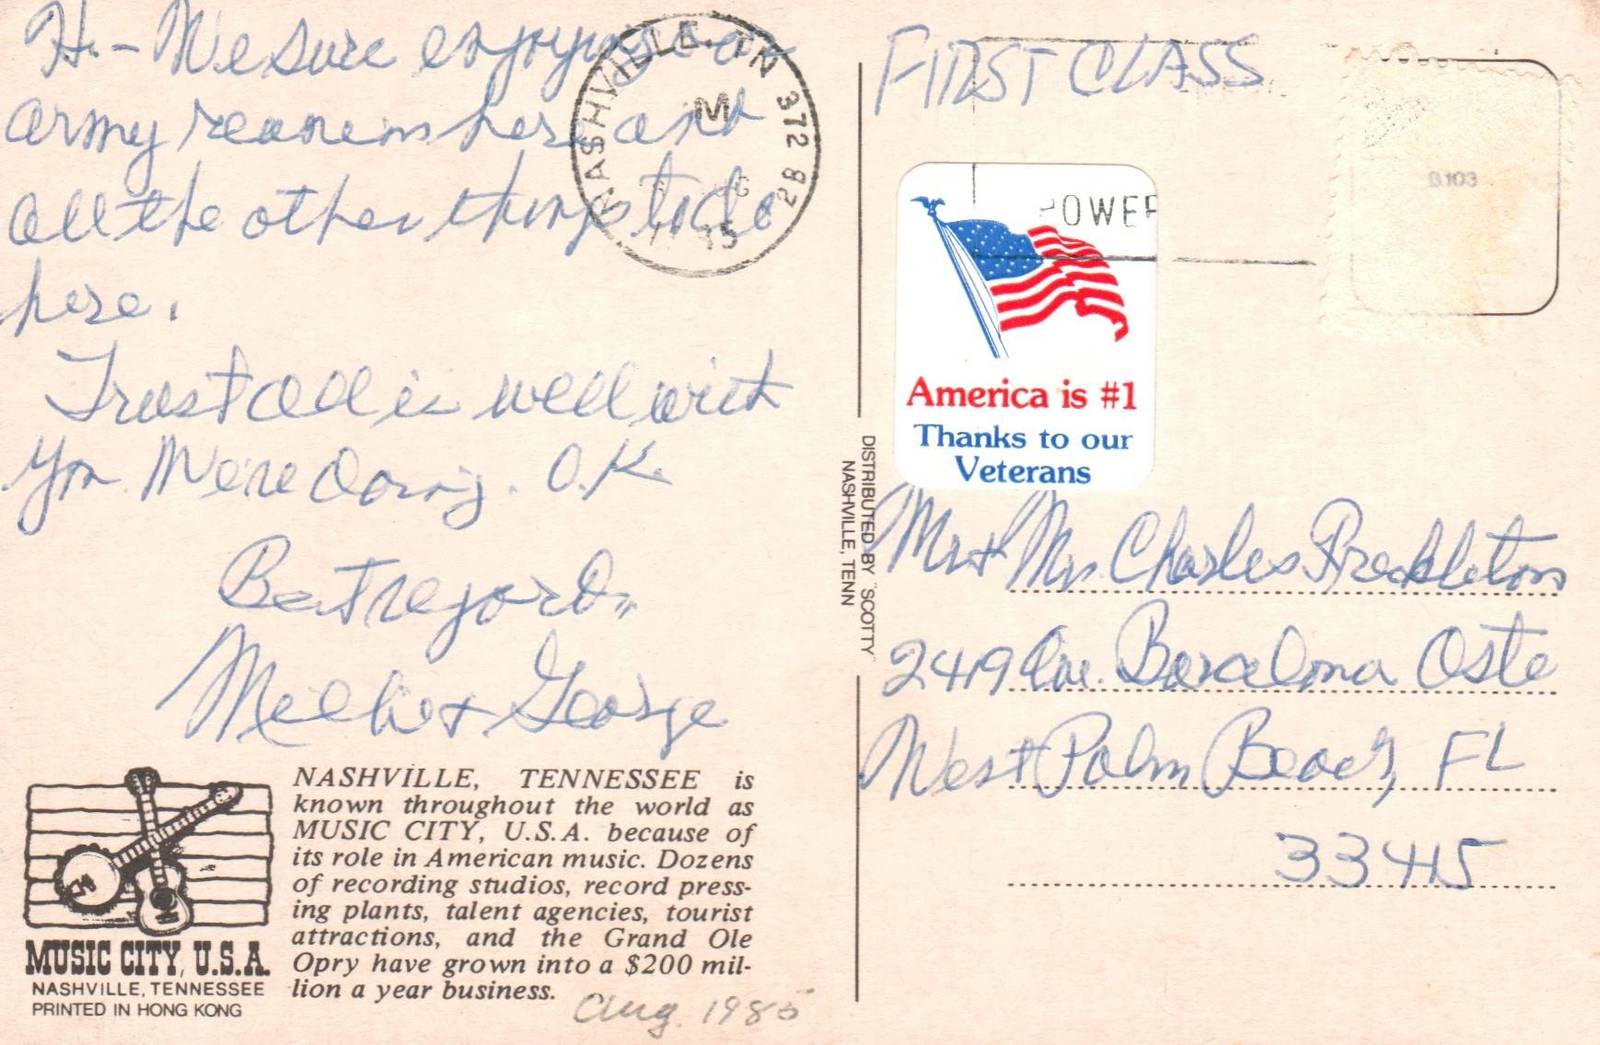 Hi - We sure enjoying a
army reunions here and
all the other things to do
here.
Trust all is well with
you We're doing. O.K.
Best regards,
Millie & George
NASHVILLE, TN 372
M
15
82
FIRST CLASS
POWER
B103
America is #1
Thanks to our
Veterans
DISTRIBUTED BY "SCOTTY"
NASHVILLE, TENN
Mr & Mrs. Charles Freckleton
2419 Ave. Barcelona Oste
West Palm Beach, FL
33415
MUSIC CITY, U.S.A.
NASHVILLE, TENNESSEE
PRINTED IN HONG KONG
NASHVILLE, TENNESSEE is
known throughout the world as
MUSIC CITY, U.S.A. because of
its role in American music. Dozens
of recording studios, record press-
ing plants, talent agencies, tourist
attractions, and the Grand Ole
Opry have grown into a $200 mil-
lion a year business.
Aug. 1985